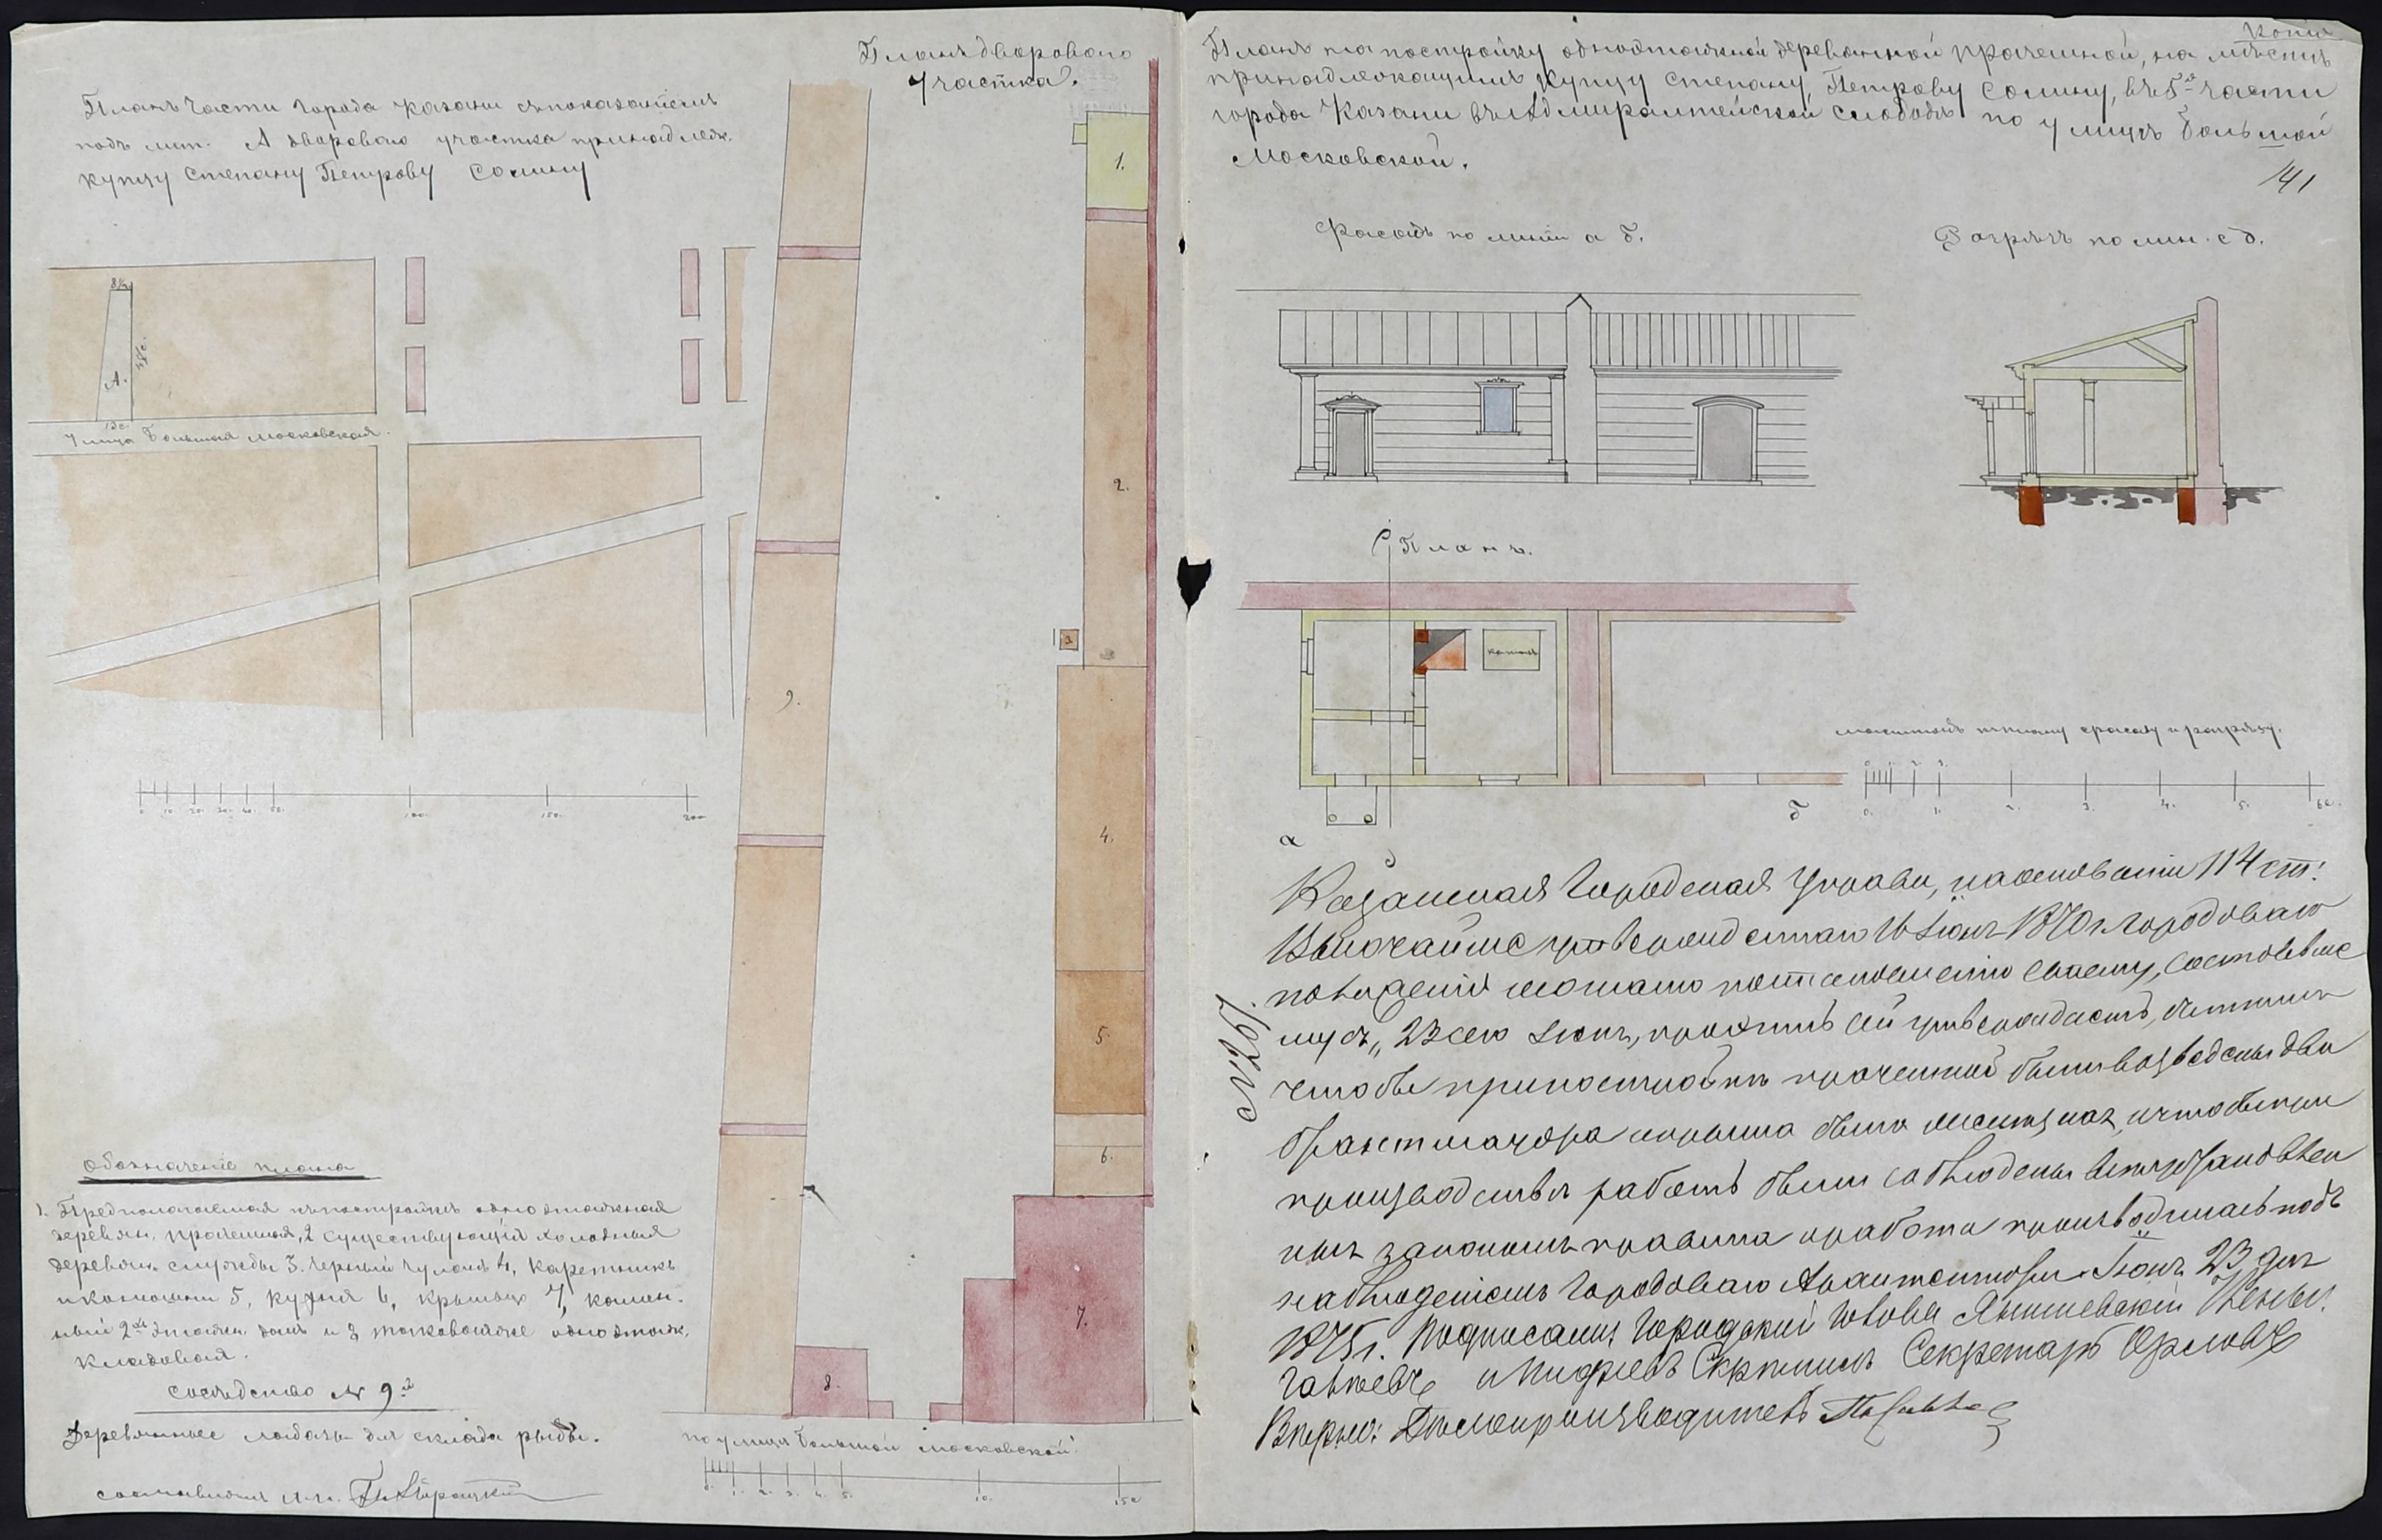 Планъ части города Казани съ показаніемъ
подъ лит. А двороваго участка принадлеж.
купцу Степану Петрову Сомину
8½
45 с.
А.
12 с.
Улица Большая Московская.
0. 10. 20. 30. 40. 50. 100. 150. 200
Обозначеніе плана
1. Предполагаемая къ постройкѣ одноэтажная
деревян. прачешная, 2 существующія холодныя
деревян. службы 3. черный чуланъ 4, каретникъ
и конюшни 5, кухня 6, крыльцо 7, камен-
ный 2хъ этажн. домъ и 8 таковая же одноэтаж.
кладовая.
Сосѣдство № 9й
Деревянные лабазы для склада рыбы.
составлялъ
Планъ двороваго
участка.
1.
2.
3
4.
5.
6.
7.
8.
9.
по улицѣ Большой Московской
0. 1. 2. 3. 4. 5. 10. 15 с
Копія
Планъ на постройку одноэтажной деревянной прачешной, на мѣстѣ
принадлежащемъ купцу Степану Петрову Сомину, въ 5й части
города Казани въ Адмиралтейской слободѣ по улицѣ Большой
Московской.
141
Фасадъ по линіи а б.
Разрѣзъ по лин. с д.
с
Планъ.
котелъ
а
д
б
масштабъ къ плану фасаду и разрѣзу.
0. 1. 2. 3.
0. 1. 2. 3. 4. 5. 6 с.
№ 267.
Казанская Городская Управа, на основаніи 114 ст.
Высочайше утвержденнаго 16 Іюня 1870 г. Городоваго
положенія и согласно постановленію своему, состоявше
муся 23 сего Іюня, проэктъ сей утверждаетъ, съ тѣмъ
чтобы при постройкѣ прачешной были возведены два
брантмауэра крыша была желѣзная, и чтобы при
производствѣ работъ были соблюдены всѣ установлен
ныя закономъ правила и работа производилась подъ
наблюденіемъ Городоваго Архитектора. Іюня 23 дня
1875 г. Подписали: Городской Голова Янишевскій Члены:
и Скрѣпилъ Секретарь Орловъ
Вѣрно: Дѣлопроизводитель